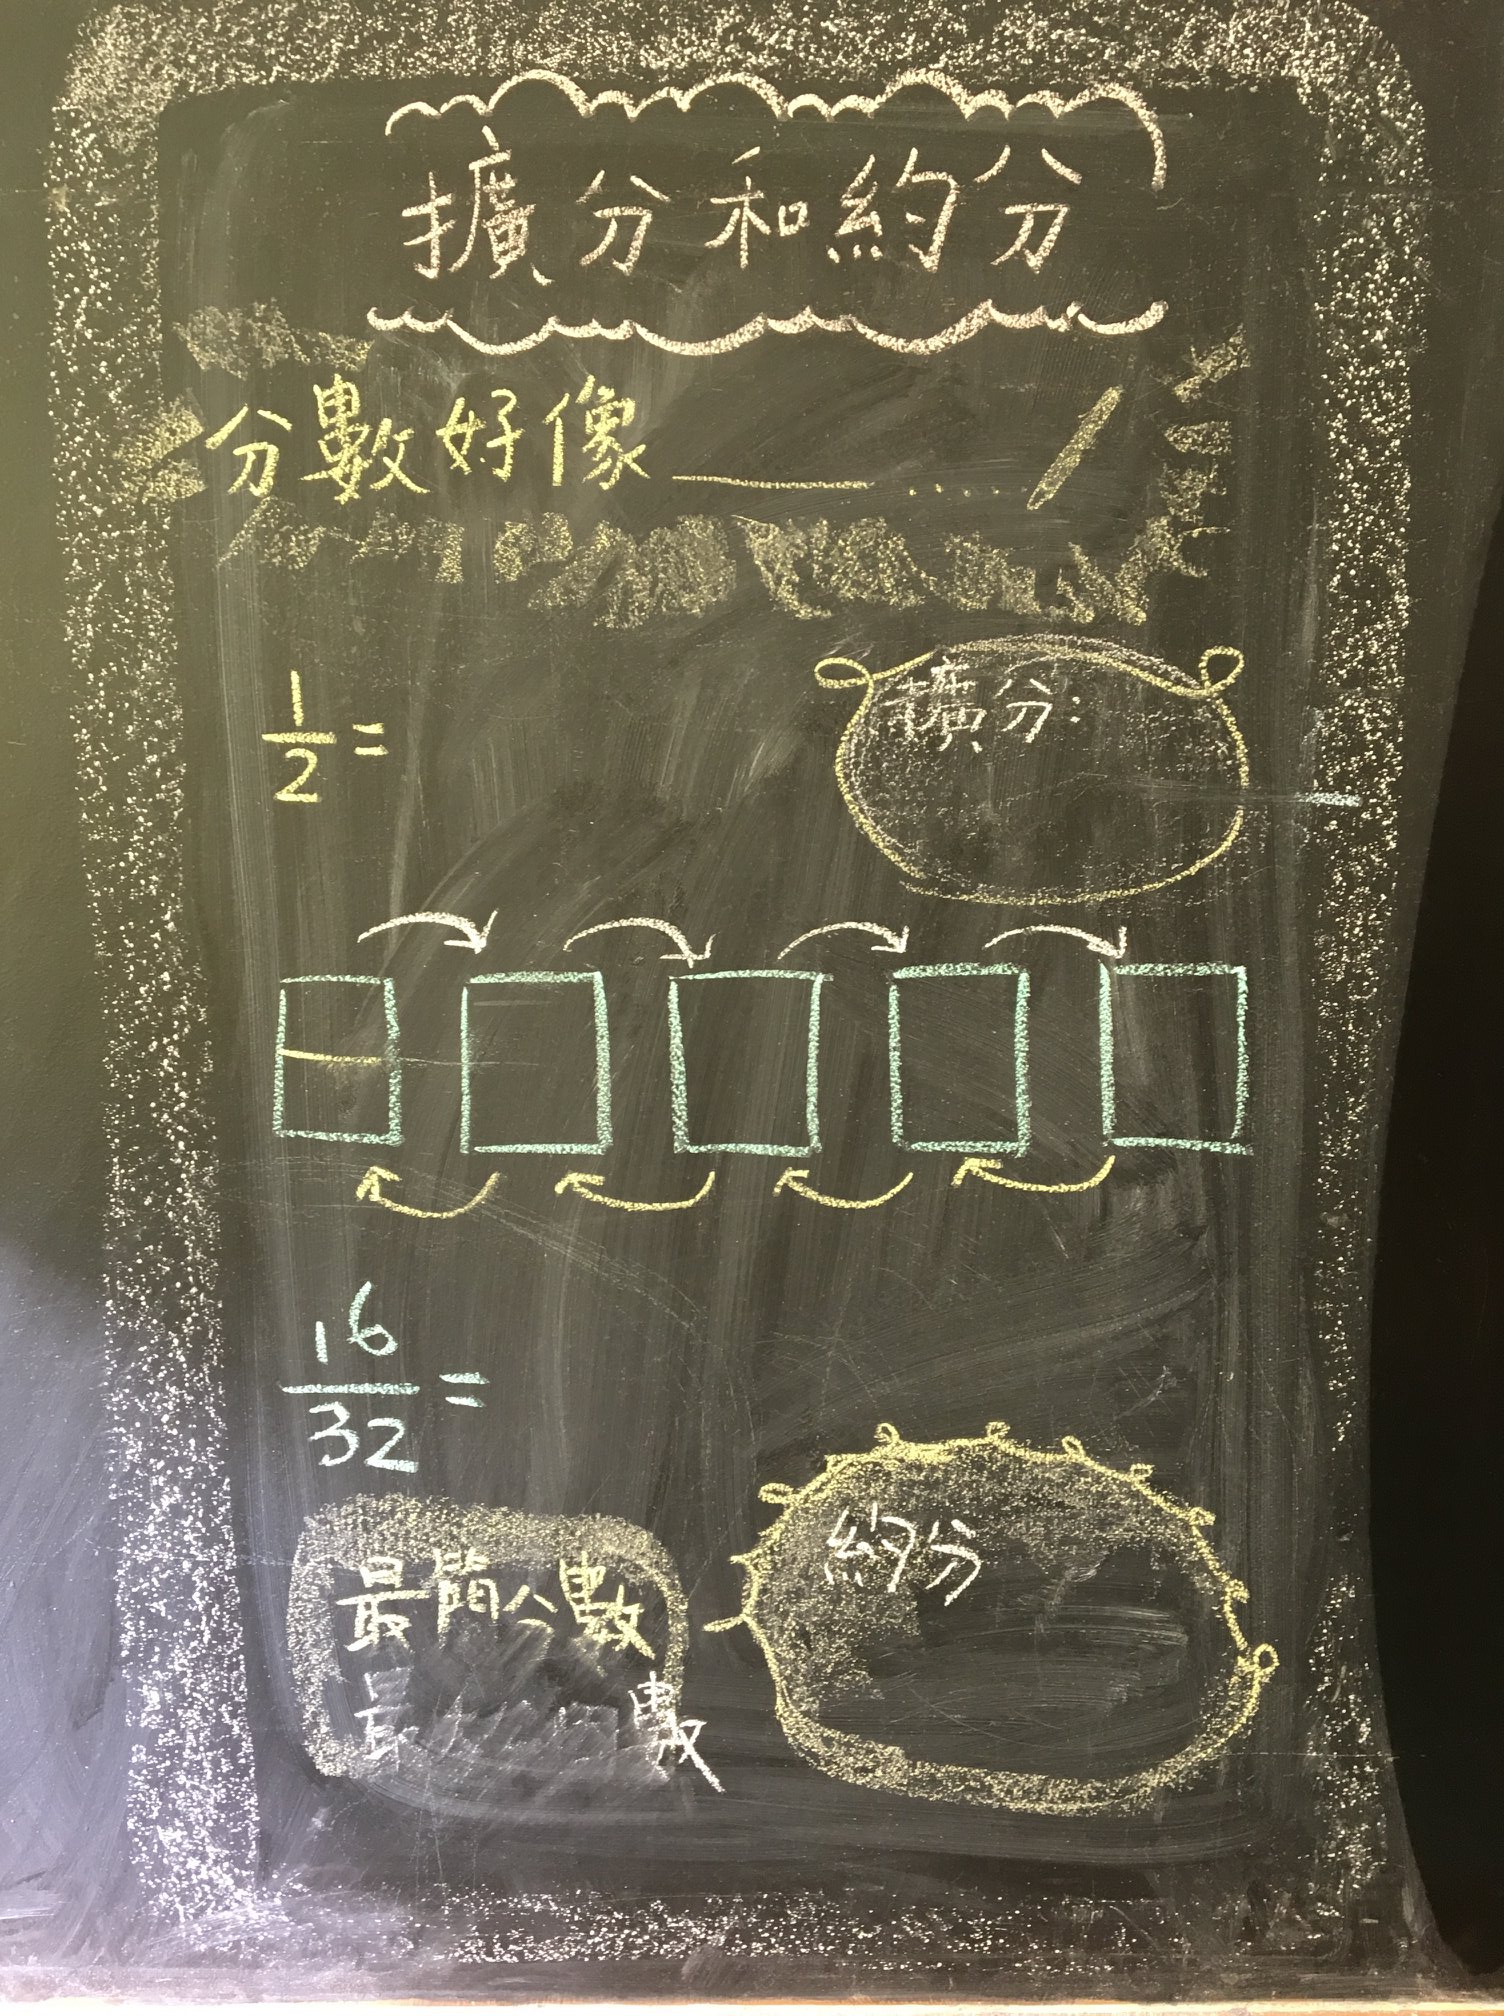 擴分和約分
分數好像______.....
1/2=
擴分:
16/32=
最簡分數
約分
最大 數